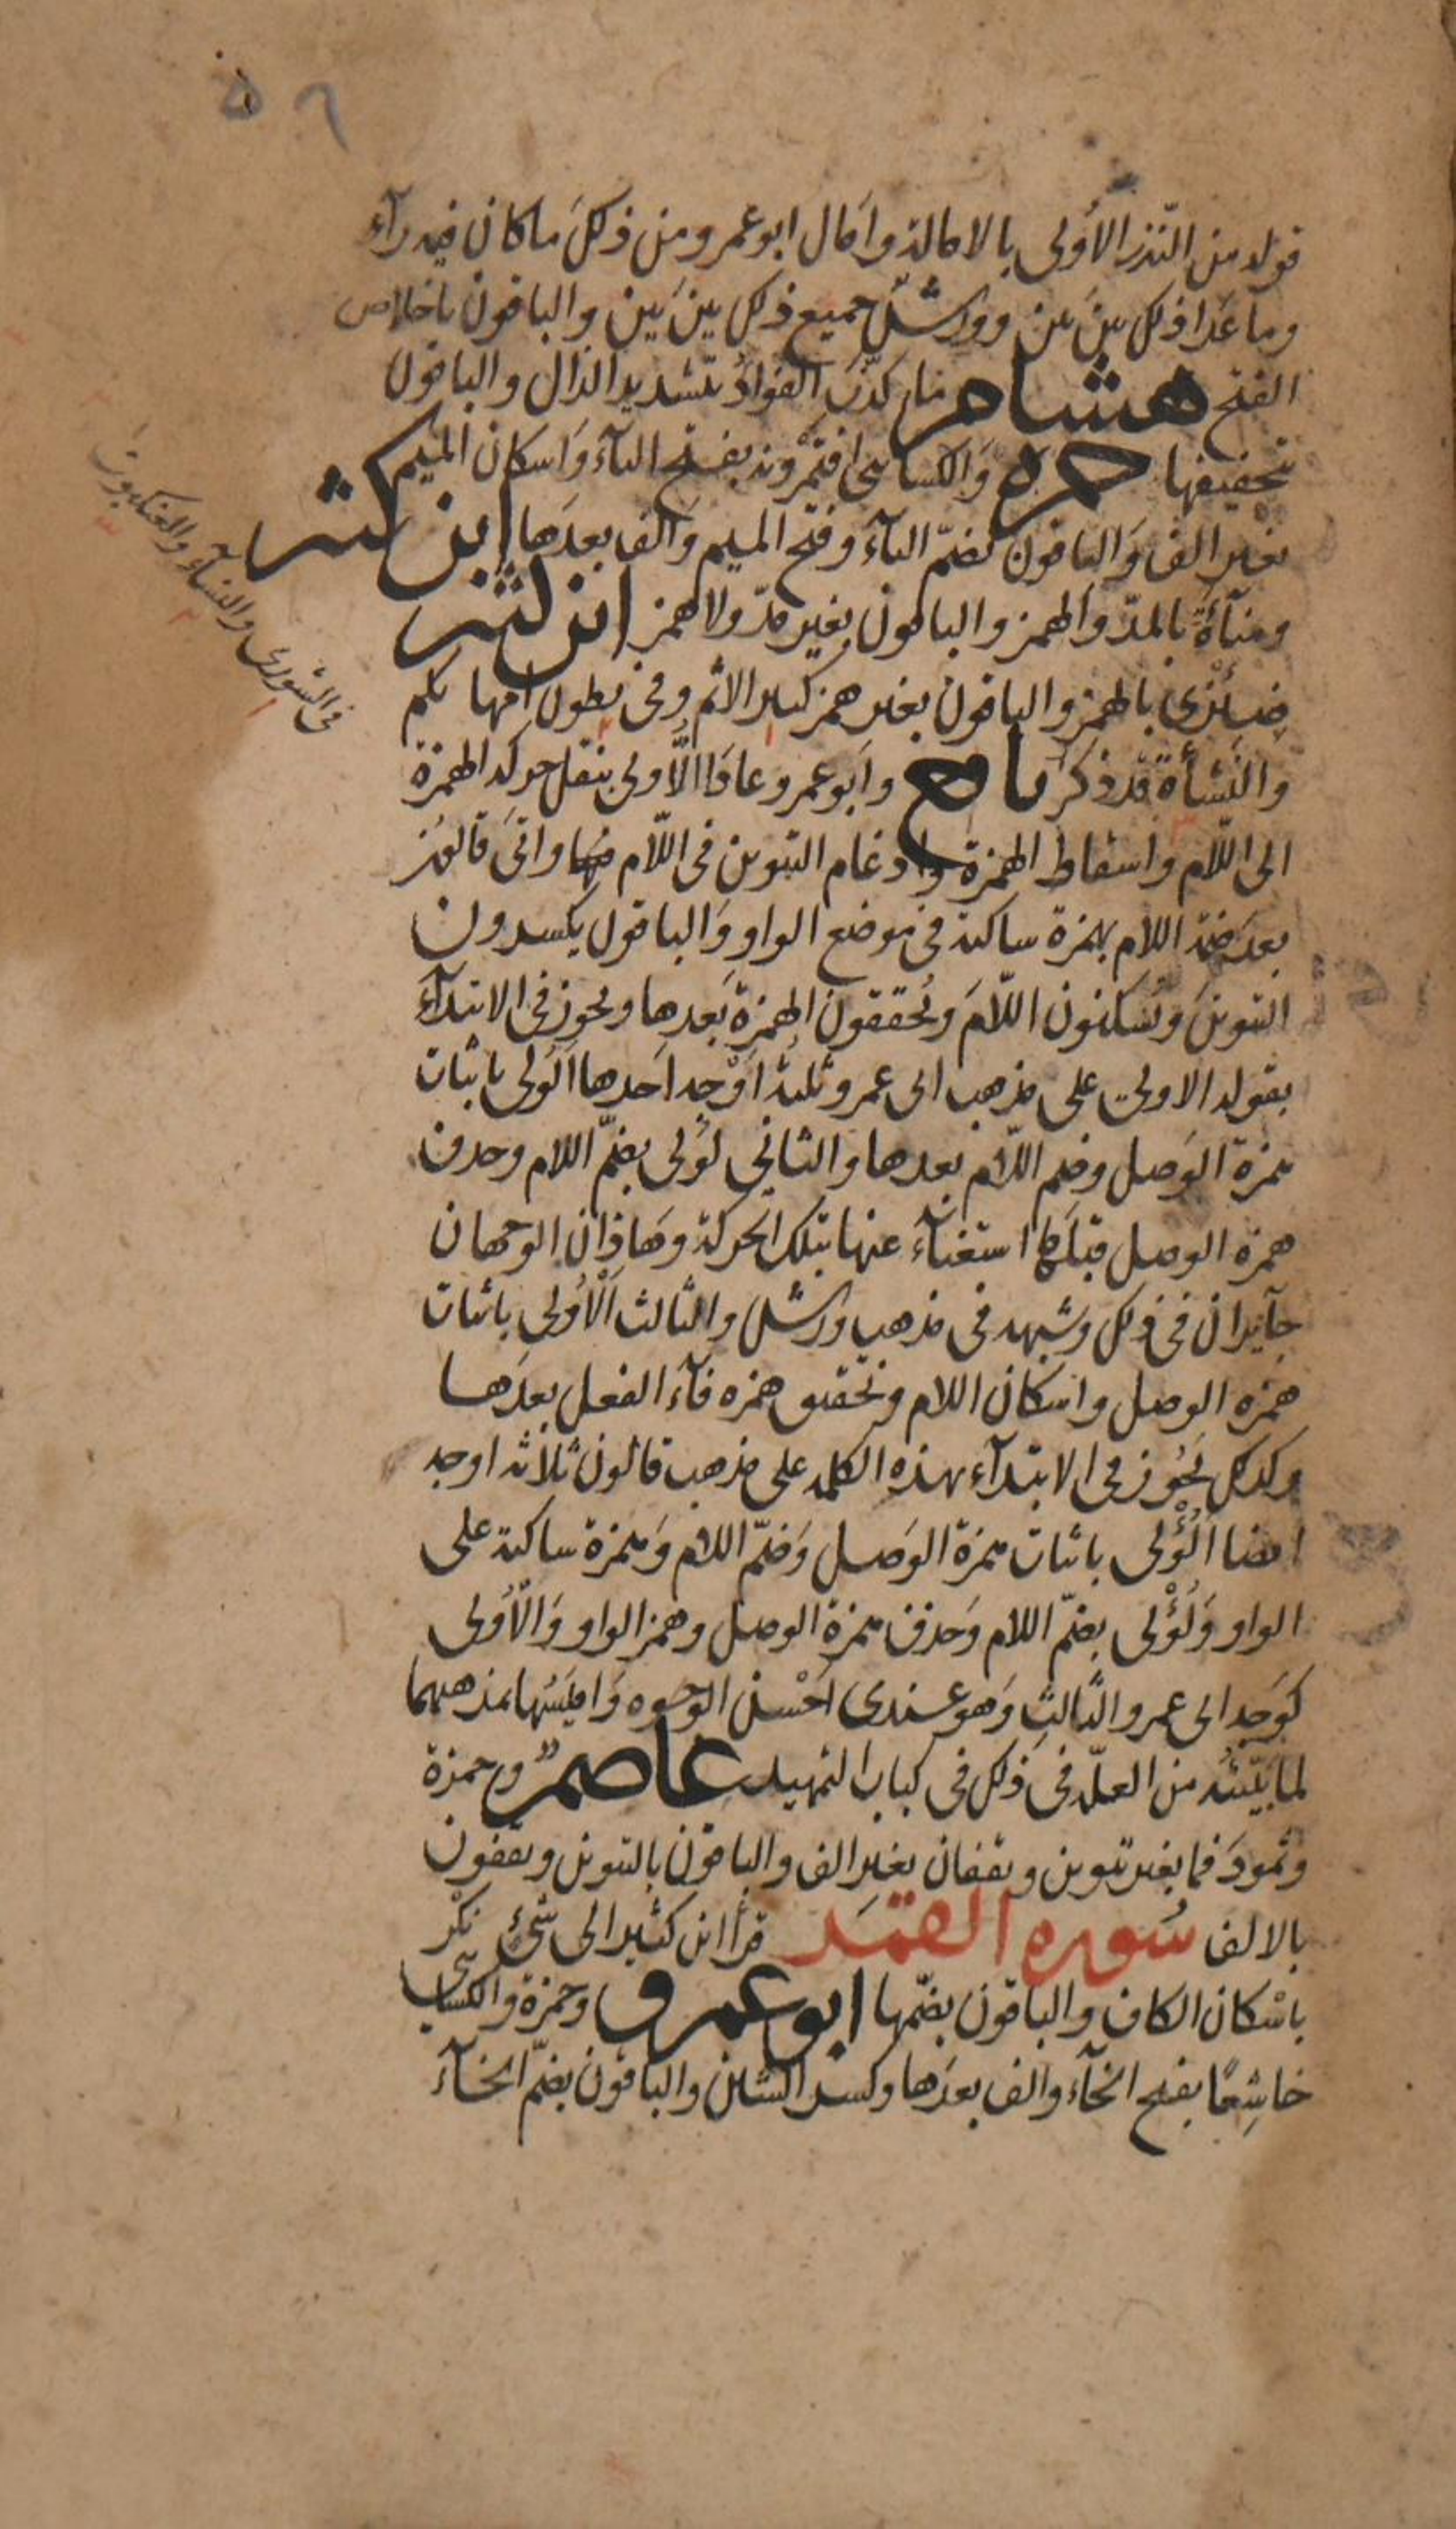 ٥٦
قوله من النّذر الأُولى بالامالة وامال ابو عمرو من ذلك ما كان فيه رآء
وما عَدا ذلك بينَ بين وورشٌ جميع ذلك بينَ بين والباقون باخلاص
الفتح هشام ما كذّبَ الفؤادُ بتشديد الذال والباقون
بتخفيفها حمزه وَالكسائى افتَمْرُونه بفتح التآء وَاسكان الميم
بغير الف وَالباقون بضمّ التآء وفتح الميم وَالف بعدَها ابن كثير
ومنآءَةَ بالمدّ والهمز والباقون بغير مدّ ولا همز ابن كثير
ضِئْزى بالهمز والباقون بغير همز كبير الاثم وفى بطون امهاتكم
والنّشأةَ قد ذكر نافع وابو عمرو عادًا الُّاولى بنقل حركه الهمزة
الى اللّام واسقاط الهمزة وادغام التنوين فى اللّام فيها واتى قالون
بعدَ ضمّة اللام بهمزة ساكنة فى موضع الواو وَالباقون يكسرون
التنوينَ ويُسكنون اللّامَ ويُحققون الهمزةَ بَعدها ويجوز فى الابتدآء
بقوله الاولى على مذهب ابى عمرو ثلثة اوْجه اَحدها اَلُولى باثبات
همزة الوَصل وضم اللّام بعدها والثانى لُولى بضمّ اللام وحذف
همزه الوصل قبلَها استغنآء عنها بتلك الحركة وهَاذان الوجهان
جآيزان فى ذلك وشبهه فى مذهب ورش والثالث اَلْاُولى باثبات
همزه الوصل واسكان اللام وتحقيق همزه فآء الفعل بعدَها
وكذلك يَجُوز فى الابتدآء بهذه الكلمه على مذهب قالون ثلاثه اوجه
ايضا اَلُؤْلى باثبات همزة الوَصل وَضمّ اللام وَهمزة ساكنة على
الواو وَلُؤْلى بضمّ اللام وَحذف همزة الوصل وهمز الواو وَالْاُولى
كوَجه ابى عمرو الثّالثِ وَهو عندى اَحْسن الوجوه وَاقيَسُها بمذهبهما
لما بَيّنتُه من العلّه فى ذلك فى كتاب التمهيد عاصم وحمزة
وثمودَ فما بغير تنوين ويقفان بغير الف والباقون بالتنوين ويقفون
بالالف سُوره القمَر قرأ ابن كثير الى شئٍ نكْر
باسْكان الكاف والباقون بضمّها ابو عمرو وحمزة والكسائى
خاشِعًا بفتح الخآء والف بعدَها وكسر الشين والباقون بضمّ الخآء
فى الشورى والنسآء والعنكبوت